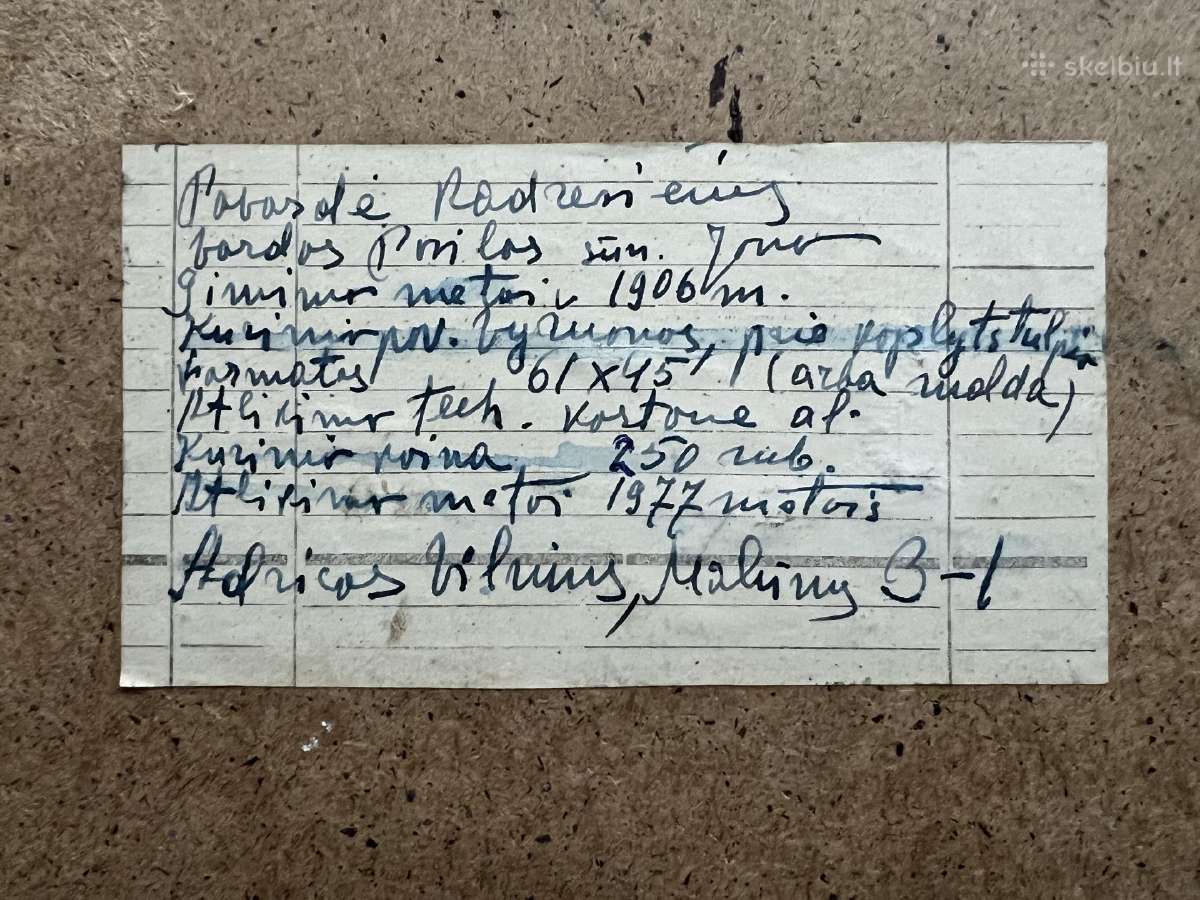 skelbiu.lt
Pavardė Radzevičius
vardas Povilas sūn. Jono
Gimimo metai 1906 m.
Kurinio pav. Vyžuonos, prie koplytstulpių
Formatas 61 x 45 (arba malda)
Atlikimo tech. kartone al.
Kurinio kaina 250 rub.
Atlikimo metai 1977 metais
Adresas Vilnius, Malūnų 3-1